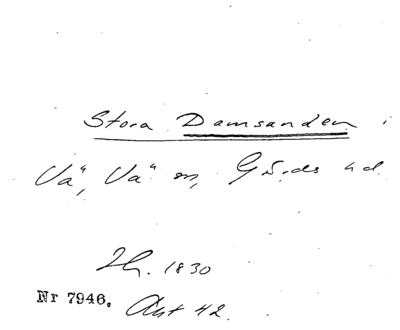 Stora Damsanden i
Vä, Vä sn, Gärds hd
Lh. 1830
Nr 7946. Akt 42.